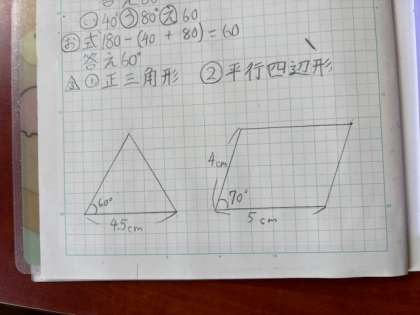 ① 40 ③ 80° ⑤ 60
お 式 180-(40+80)=60
答え 60°
① 正三角形 ② 平行四辺形
60°
4.5cm
4cm
70°
5cm